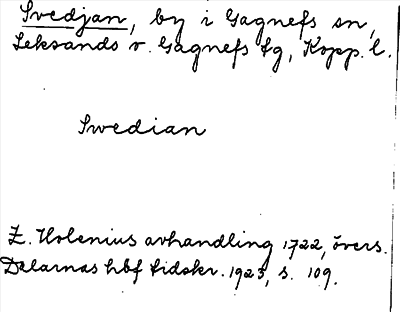 Svedjan, by i Gagnefs sn,
Leksands o. Gagnefs tg, Kopp. l.
Swedian
E. Holenius avhandling 1722, övers.
Dalarnas hbf tidskr. 1923, s. 109.